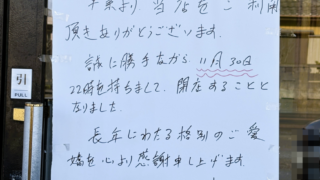 平素より当店をご利用
頂きありがとうございます.
誠に勝手ながら 11月30日
22時を持ちまして、閉店することと
なりました.
長年にわたる格別のご愛
嬌を心より感謝申し上げます.
引
PULL